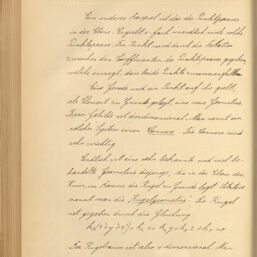 Ein anderes Beispiel ist das des Punktepaares
in der Ebene. Es giebt 4-fach unendlich viele solche
Punktepaare. Ein Punkt wird durch die Relation
zwischen den Coëfficienten des Punktepaares gegeben,
welche aussagt, dass beide Punkte zusammenfallen.
Eine Gerade und ein Punkt auf ihr giebt,
als Element zu Grunde gelegt, eine neue Geometrie.
Diese Gebilde ist dreidimensional. Man nennt ein
solches System einen Connex. Die Connexe sind
sehr wichtig.
Endlich ist eine sehr bekannte und viel be-
handelte Geometrie diejenige, die in der Ebene den
Kreis, im Raume die Kugel zu Grunde legt. Letztere
nennt man die Kugelgeometrie. Die Kugel
ist gegeben durch die Gleichung:
Der Kugelraum ist also 4 dimensional. Man